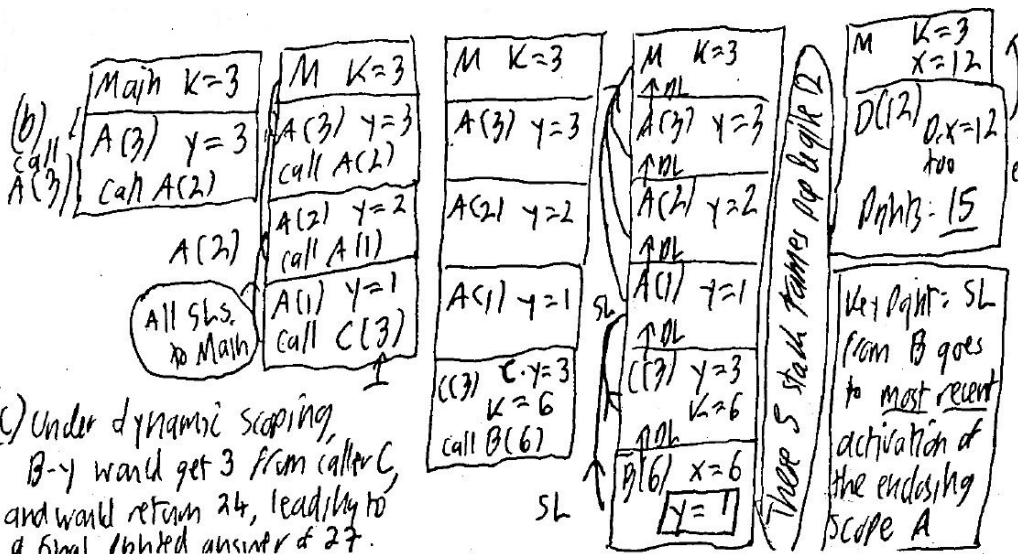 (b)
call
A(3)
Main K=3
A(3) y=3
call A(2)
A(2)
All SLs.
to Main
M K=3
A(3) y=3
call A(2)
A(2) y=2
call A(1)
A(1) y=1
call C(3)
M K=3
A(3) y=3
A(2) y=2
A(1) y=1
C(3) C.y=3
K=6
call B(6)
M K=3
↑DL
A(3) y=3
↑DL
A(2) y=2
↑DL
SL A(1) y=1
↑DL
C(3) y=3
K=6
↑DL
B(6) x=6
y=1
SL
These 5 stack frames pop before D
M K=3
x=12
D(12) D.x=12
too
Prints: 15
Key point: SL
from B goes
to most recent
activation of
the enclosing
scope A
c) Under dynamic scoping,
B-y would get 3 from caller C,
and would return 24, leading to
a final printed answer of 27.